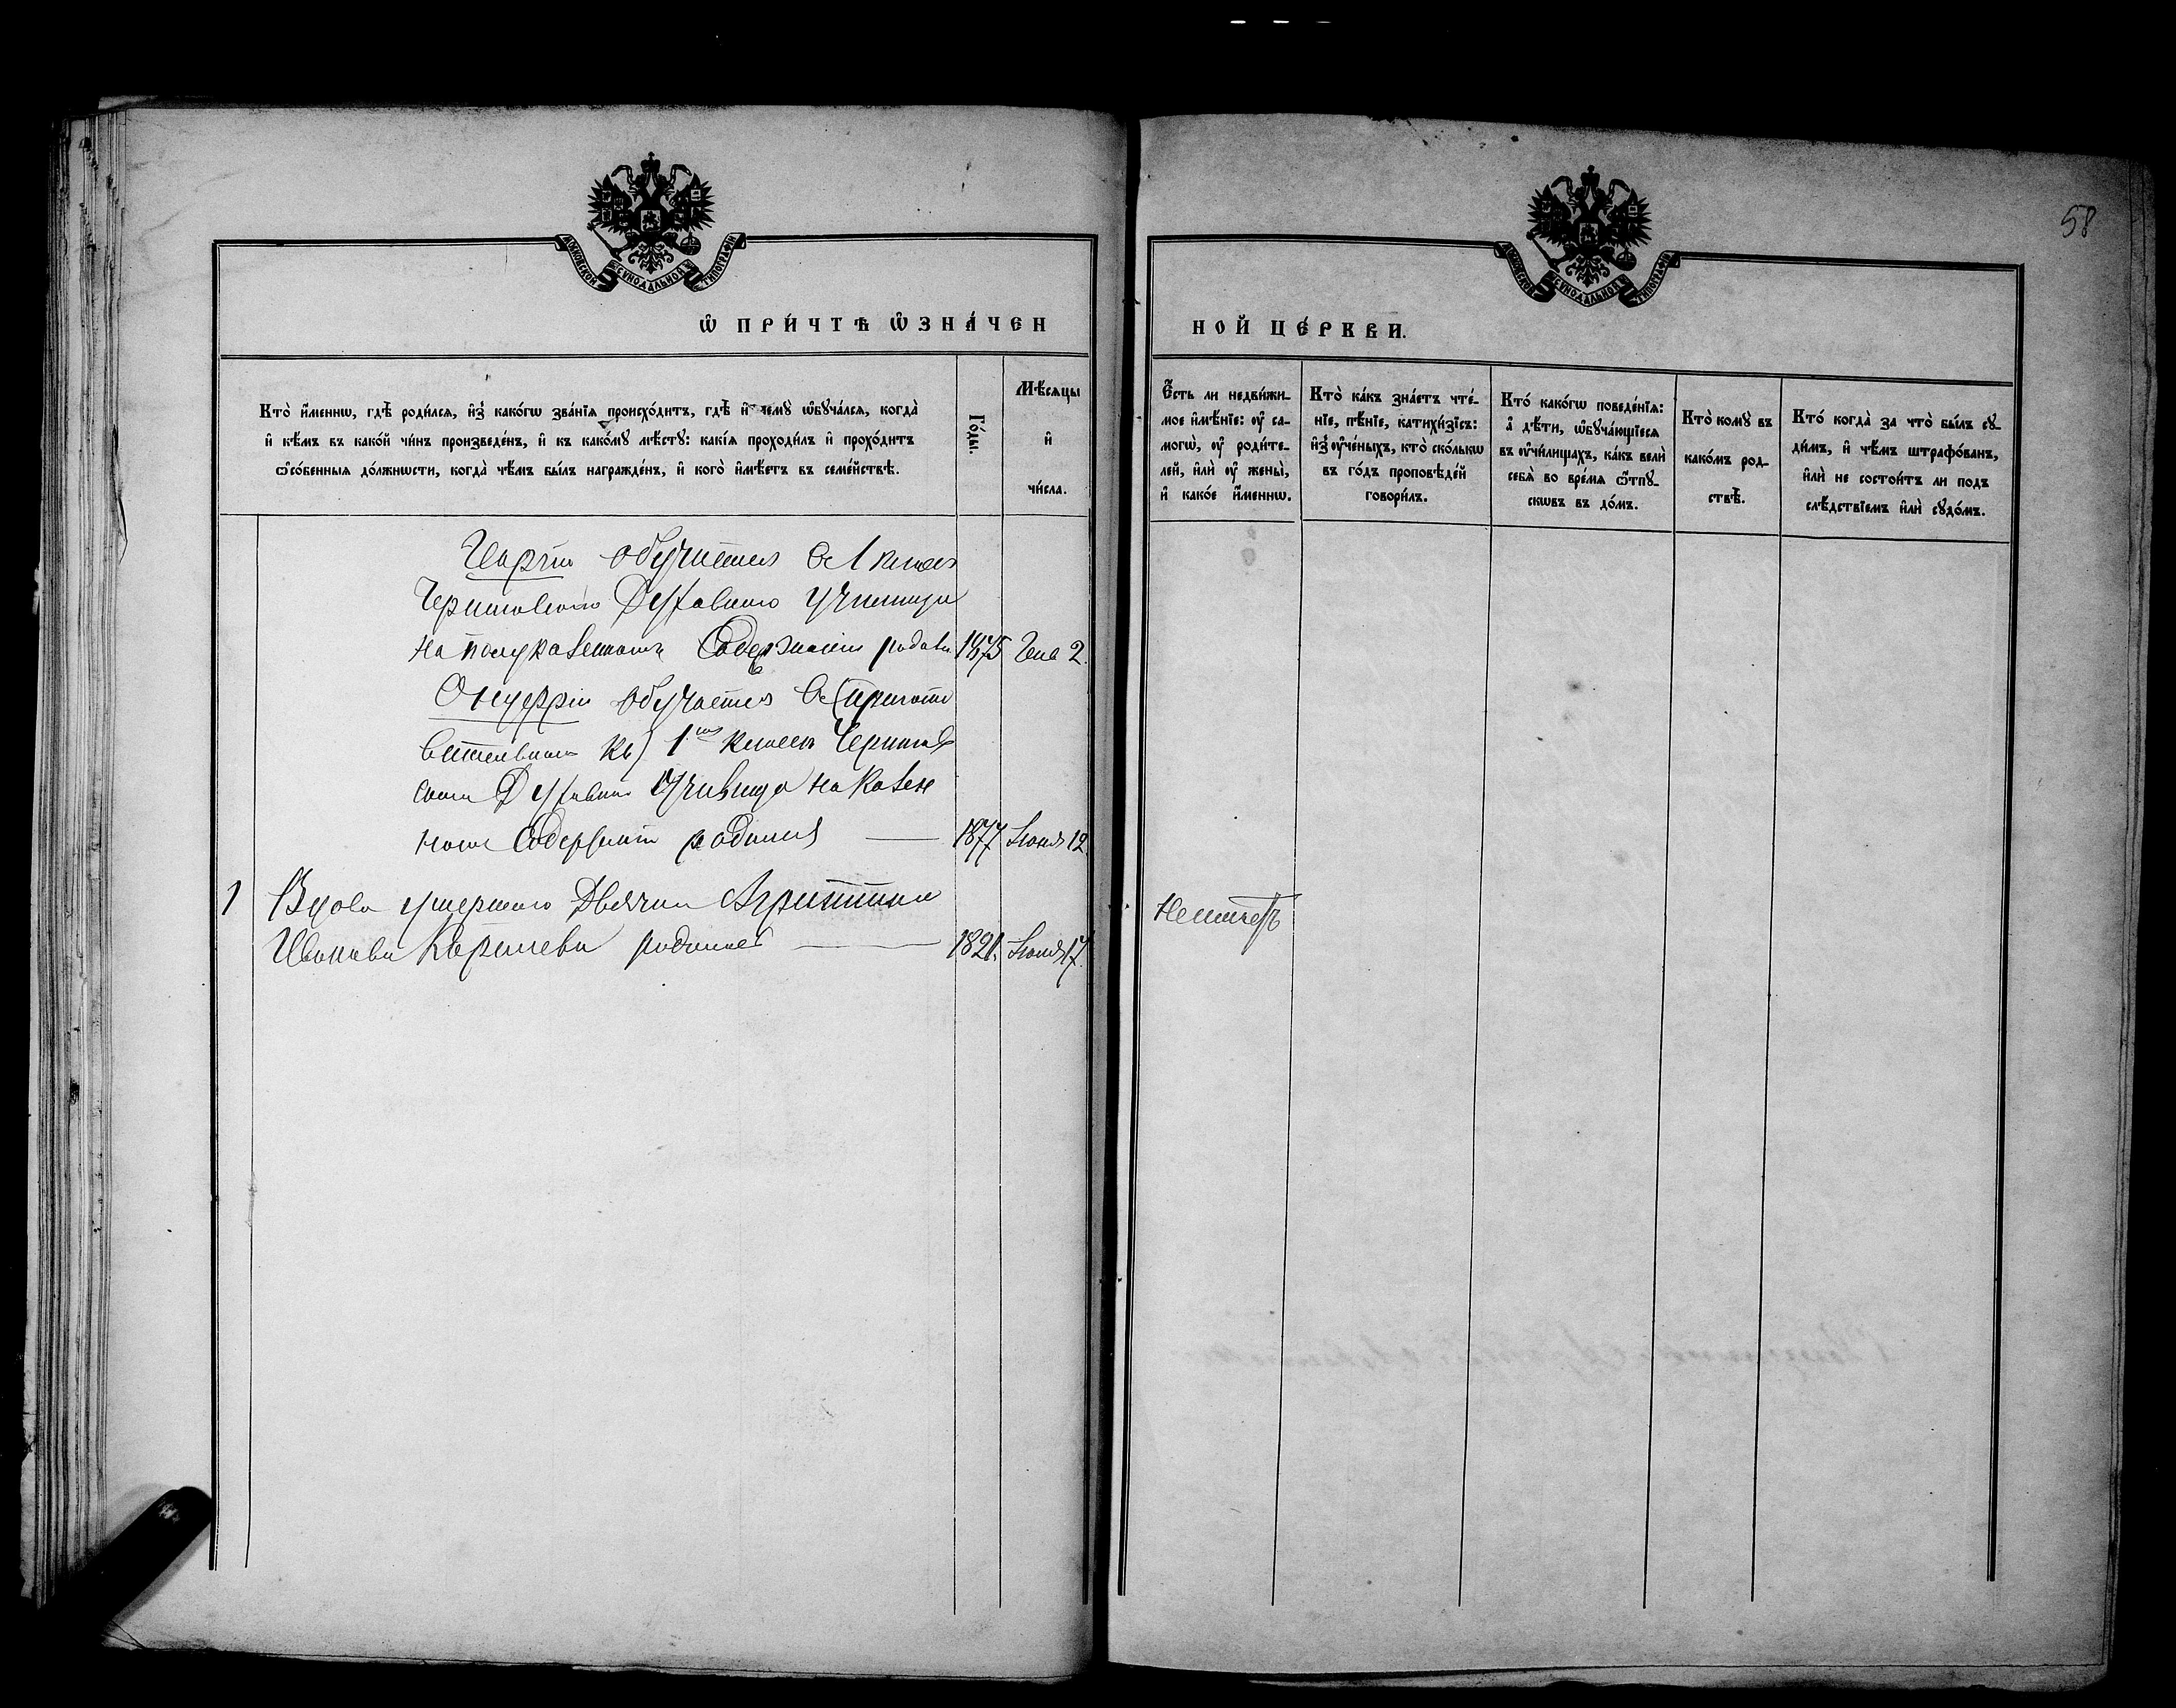 58
МОСКОВСКОЙ СѴНОДАЛЬНОЙ ТИПОГРАФІИ
МОСКОВСКОЙ СѴНОДАЛЬНОЙ ТИПОГРАФІИ
Ѡ ПРИ́ЧТѢ ѠЗНА́ЧЕН
НОЙ ЦЕ́РКВИ.
Кто̀ и҆́меннѡ, гдѣ̀ роди́лсѧ, и҆з̾ како́гѡ зва́нїѧ происхо́дитъ, гдѣ̀ и҆ чемꙋ̀ ѡ҆бꙋча́лсѧ, когда̀
и҆ кѣ́мъ въ како́й чи́нъ произведе́нъ, и҆ къ како́мꙋ мѣ́стꙋ: какі́ѧ проходи́лъ и҆ прохо́дитъ
ѻ҆со́бенныѧ до́лжнѡсти, когда̀ чѣ́мъ бы́лъ награжде́нъ, и҆ кого̀ и҆мѣ́етъ въ семе́йствѣ.
Го́ды.
Мѣ́сѧцы
и҆
чи́сла.
Е҆́сть ли недви́жи-
мое и҆мѣ́нїе: ᲂу҆ са-
могѡ̀, ᲂу҆ роди́те-
лей, и҆лѝ ᲂу҆ жены̀,
и҆ како́е и҆́меннѡ.
Кто̀ ка́къ зна́етъ чте́-
нїе, пѣ́нїе, катихи́зїсъ:
и҆з̾ ᲂу҆че́ныхъ, кто̀ ско́лькѡ
въ го́дъ проповѣ́дей
говори́лъ.
Кто̀ како́гѡ поведе́нїѧ:
а҆ дѣ́ти, ѡ҆бꙋча́ющїесѧ
въ ᲂу҆чи́лищахъ, ка́къ велѝ
себѧ̀ во вре́мѧ ѿпꙋ-
скѡвъ въ до́мъ.
Кто̀ комꙋ̀ въ
како́мъ род-
ствѣ̀.
Кто̀ когда̀ за что̀ бы́лъ сꙋ-
ди́мъ, и҆ чѣ́мъ штрафо́ванъ,
и҆лѝ не состои́тъ ли подъ
слѣ́дствїемъ и҆лѝ сꙋдо́мъ.
обучается въ 1 классѣ
Черниговскаго Духовнаго училища
на полуказенномъ содержаніи родил. 1875 Генв 2.
Онуфрій обучается въ (пригото
вительномъ къ) 1му классѣ Чернигов
скаго Духовнаго Училища на казен
номъ содержаніи родился — 1877 Іюня 12
1 Вдова умершаго Дьячка Агрипина
Иванова родилась — 1821. Іюня 17.
Неимѣетъ